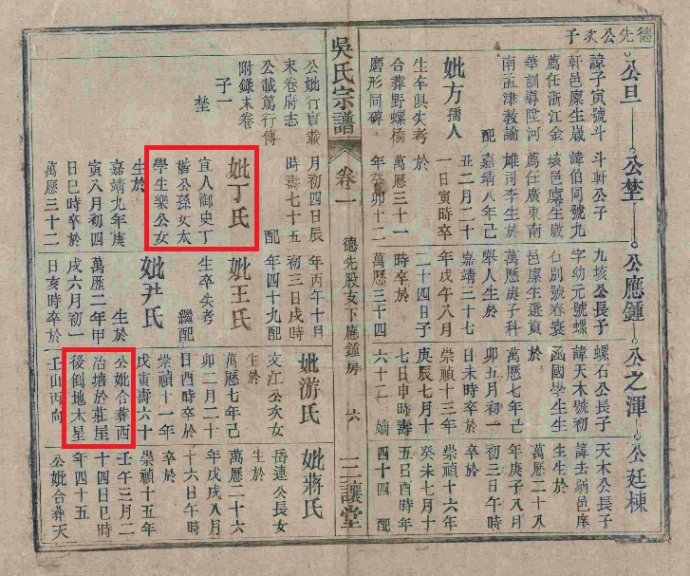 德先公次子
公旦
公埜
公應鍾
公之渾
公廷棟
諱子寅號斗
軒邑廩生歲
薦任浙江金
華訓導陞河
南孟津教諭
配
妣方孺人
生卒俱失考
合葬野螺橋
磨形同碑
斗軒公子
諱伯同號九
垓邑廩生歲
薦任廣東南
雄司李生於
嘉靖八年己
丑二月二十
一日寅時卒
於
萬曆三十一
年癸卯十二
九垓公長子
字幼元號螺
石別號春裳
邑廩生選貢
萬曆庚子科
舉人生於
嘉靖三十七
年戊午八月
二十四日子
時卒於
萬曆三十四
螺石公長子
諱天木號初
函國學生生
於
萬曆七年己
卯五月初一
日未時卒於
崇禎十三年
庚辰七月十
七日申時壽
六十二 嫡
天木公長子
諱去病邑庠
生生於
萬曆二十八
年庚子八月
初三日午時
卒於
崇禎十六年
癸未七月十
五日酉時年
四十四 配
吳氏宗譜
卷一
德先股支下應鍾房
六
三讓堂
公妣行實載
末卷府志
公載篤行傳
附錄末卷
子一
埜
月初四日辰
時壽七十五
配
妣丁氏
宜人御史丁
楷公孫女太
學生樂公女
生於
嘉靖九年庚
寅八月初四
日巳時卒於
萬曆三十二
年丙午十月
初三日戌時
年四十九配
妣王氏
生卒失考
繼配
妣尹氏
生於
萬曆二年甲
戌六月初一
日亥時卒於
妣游氏
文江公次女
生於
萬曆七年己
卯二月二十
日酉時卒於
崇禎十一年
戊寅壽六十
公妣合葬西
冶塘於莊屋
後倒地太星
壬山丙向
妣蔣氏
岳連公長女
生於
萬曆二十六
年戊戌八月
十六日午時
卒於
崇禎十五年
壬午三月二
十四日巳時
年四十五
公妣合葬天